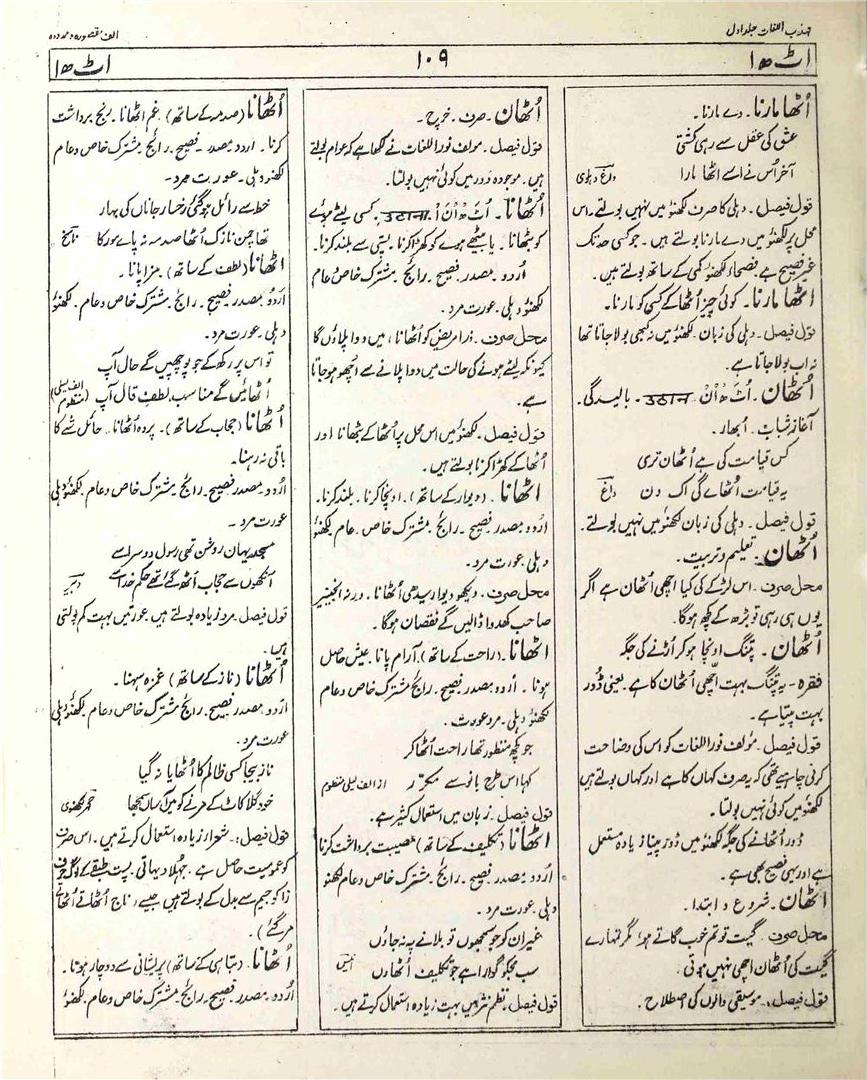 مہذب اللغات جلد اول
الف مقصورہ و ممدودہ
اٹھا
۱۰۹
اٹھا
اُٹھا مارنا۔ دے مارنا۔
عشق کی عقل سے رہی کشتی
آخر اُس نے اسے اٹھا مارا داغ دہلوی
قول فیصل۔ دہلی کا صرف لکھنؤ میں نہیں بولتے۔ اس
محل پر لکھنؤ میں دے مارنا بولتے ہیں۔ جو کسی حد تک
غیر فصیح ہے فصحاء لکھنؤ کمی کے ساتھ بولتے ہیں۔
اٹھا مارنا۔ کوئی چیز اُٹھا کے کسی کو مارنا۔
قول فیصل۔ دہلی کی زبان۔ لکھنؤ میں نہ کبھی بولا جاتا تھا
نہ اب بولا جاتا ہے۔
اُٹھان۔ اُٹ۫ھ۔اْ۔ن۫ उठान۔ بالیدگی۔
آغاز شباب۔ اُبھار۔
کس قیامت کی ہے اُٹھان تری
یہ قیامت اُٹھائے گی اک دن داغ
قول فیصل۔ دہلی کی زبان لکھنؤ میں نہیں بولتے۔
اُٹھان۔ تعلیم و تربیت۔
محل صرف۔ اس لڑکے کی کیا اچھی اُٹھان ہے اگر
یوں ہی رہی تو بڑھ کے کچھ ہوگا۔
اُٹھان۔ پتنگ اونچا ہو کر اُڑنے کی جگہ
فقرہ۔ یہ پتنگ بہت اچھی اُٹھان کا ہے۔ یعنی ڈور
بہت پیتا ہے۔
قول فیصل۔ مؤلف نور اللغات کو اس کی وضاحت
کرنی چاہیے تھی کہ یہ صرف کہاں کا ہے اور کہاں بولتے ہیں
لکھنؤ میں کوئی نہیں بولتا۔
ڈور اُٹھانے کی جگہ لکھنؤ میں ڈور پینا زیادہ مستعمل
ہے اور یہی فصیح بھی ہے۔
اُٹھان۔ شروع و ابتدا۔
محل صرف۔ گیت تو تم خوب گاتے ہو، مگر تمہارے
گیت کی اُٹھان اچھی نہیں ہوتی۔
قول فیصل۔ موسیقی دانوں کی اصطلاح۔
اُٹھان۔ صرف۔ خرچ۔
قول فیصل۔ مولف نور اللغات نے لکھا ہے کہ عوام بولتے
ہیں۔ موجودہ دَور میں کوئی نہیں بولتا۔
اُٹھانا۔ اُٹ۫ھ۔اْ۔نْ۔اْ उठाना۔ کسی لیٹے ہوئے
کو بٹھانا۔ یا بیٹھے ہوئے کو کھڑا کرنا۔ پستی سے بلند کرنا۔
اُردو مصدر۔ فصیح۔ رائج۔ مشترک خاص عام
لکھنؤ دہلی۔ عورت مرد۔
محل صرف۔ ذرا مریض کو اُٹھانا، میں دوا پلاؤں گا
کیونکہ لیٹے ہونے کی حالت میں دوا پلانے سے اچھو ہو جاتا
ہے۔
قول فیصل۔ لکھنؤ میں اس محل پر اُٹھا کے بٹھانا اور
اُٹھا کے کھڑا کرنا بولتے ہیں۔
اُٹھانا۔ (دیوار کے ساتھ)۔ اونچا کرنا۔ بلند کرنا۔
اُردو مصدر۔ فصیح۔ رائج۔ مشترک خاص۔ عام لکھنؤ
دہلی۔ عورت مرد۔
محل صرف۔ دیکھو دیوار سیدھی اُٹھانا۔ ورنہ انجینیر
صاحب کھدوا ڈالیں گے نقصان ہوگا۔
اٹھانا۔ (راحت کے ساتھ)۔ آرام پانا۔ عیش حاصل
ہونا۔ اُردو مصدر۔ فصیح۔ رائج مشترک خاص و عام
لکھنؤ دہلی۔ مرد عورت۔
جو کچھ منظور تھا راحت اُٹھا کر
کہا اس طرح بانو سے مکرّر از الف لیلیٰ منظوم
قول فیصل۔ زبان میں استعمال کثیر ہے۔
اُٹھانا (تکلیف کے ساتھ) مصیبت برداشت کرنا
اُردو مصدر فصیح۔ رائج۔ مشترک خاص و عام لکھنؤ
دہلی۔ عورت مرد۔
غیر ان کو جو سمجھوں تو بلانے پہ نہ جاؤں
سب مجکو گوارا ہے جو تکلیف اُٹھاؤں انیس
قول فیصل۔ نظم نثر میں بہت زیادہ استعمال کرتے ہیں۔
اُٹھانا (صدمہ کے ساتھ)۔ غم اٹھانا۔ رنج برداشت
کرنا۔ اردو مصدر۔ فصیح۔ رائج مشترک خاص و عام
لکھنؤ دہلی۔ عورت مرد۔
خط سے زائل ہو گئی رخسار جاناں کی بہار
تھا چمن نازک اُٹھا صدمہ نہ پائے مور کا ناسخ
اٹھانا (لطف کے ساتھ)۔ مزا پانا۔
اُردو مصدر۔ فصیح۔ رائج۔ مشترک خاص و عام۔ لکھنؤ
دہلی۔ عورت مرد۔
تو اس پر رکھ کے جو پوچھیں گے حال آپ
اُٹھائیں گے مناسب لطف قال آپ (الف لیلیٰ منظوم)
اُٹھانا (حجاب کے ساتھ)۔ پردہ اُٹھانا۔ حائل شے کا
باقی نہ رہنا۔
اُردو مصدر فصیح۔ رائج۔ مشترک خاص و عام۔ لکھنؤ دہلی
عورت مرد۔
مسجد یہاں روشن تھی رسول دوسرا سے
آنکھوں سے حجاب اُٹھ گئے تھے حکم خدا سے دبیر
قول فیصل۔ مرد زیادہ بولتے ہیں۔ عورتیں بہت کم بولتی
ہیں۔
اُٹھانا (ناز کے ساتھ) غمزہ سہنا۔
اُردو مصدر فصیح۔ رائج۔ مشترک خاص و عام۔ لکھنؤ دہلی
عورت مرد۔
ناز بیجا کسی ظالم کا اُٹھایا نہ گیا
خود گلا کاٹ کے مرنے کو میں آساں سمجھا لکھنوی
قول فیصل۔ شعراء زیادہ استعمال کرتے ہیں۔ اس صرف
کو عمومیت حاصل ہے۔ جُہلا دیہاتی۔ پست طبقے کے لوگ حرف
زا کو جیم سے بدل کے بولتے ہیں جیسے (ناج اُٹھاتے اُٹھاتے
مر گئے)۔
اُٹھانا۔ (تباہی کے ساتھ) پریشانی سے دوچار ہونا۔
اُردو مصدر۔ فصیح۔ رائج۔ مشترک خاص و عام۔ لکھنؤ